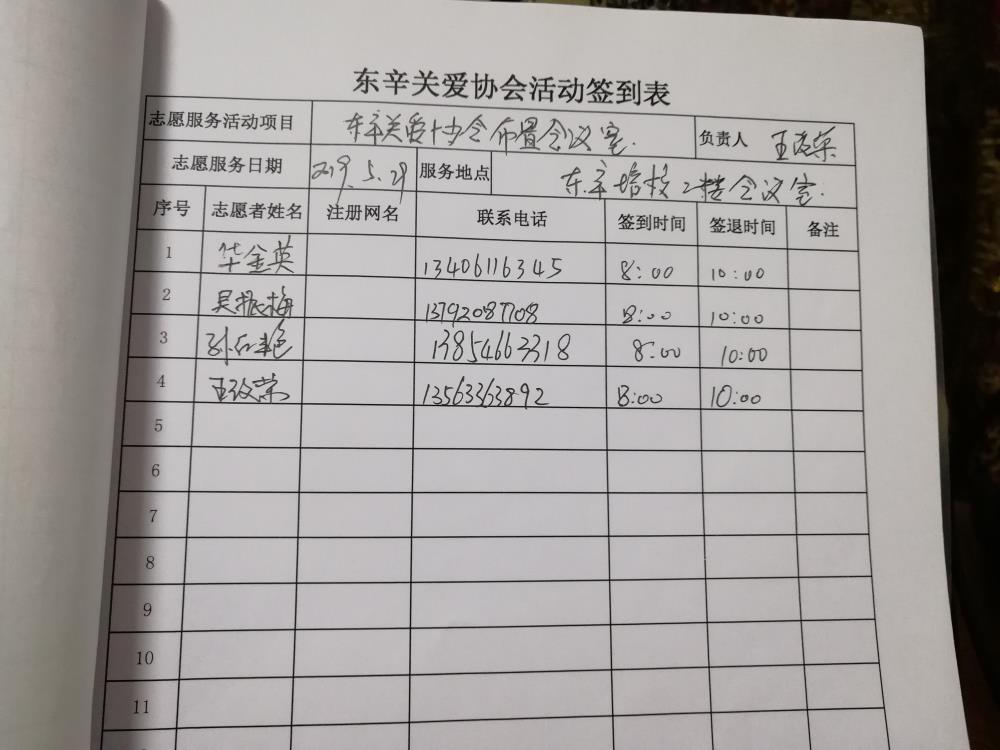 东辛关爱协会活动签到表
志愿服务活动项目 东辛关爱协会布置会议室. 负责人 王政荣
志愿服务日期 2019.5.29 服务地点 东辛培校2楼会议室.
序号 志愿者姓名 注册网名 联系电话 签到时间 签退时间 备注
1 华金英 13406116345 8:00 10:00
2 吴振梅 13792087708 8:00 10:00
3 孙红艳 13854663318 8:00 10:00
4 王政荣 13563363892 8:00 10:00
5
6
7
8
9
10
11